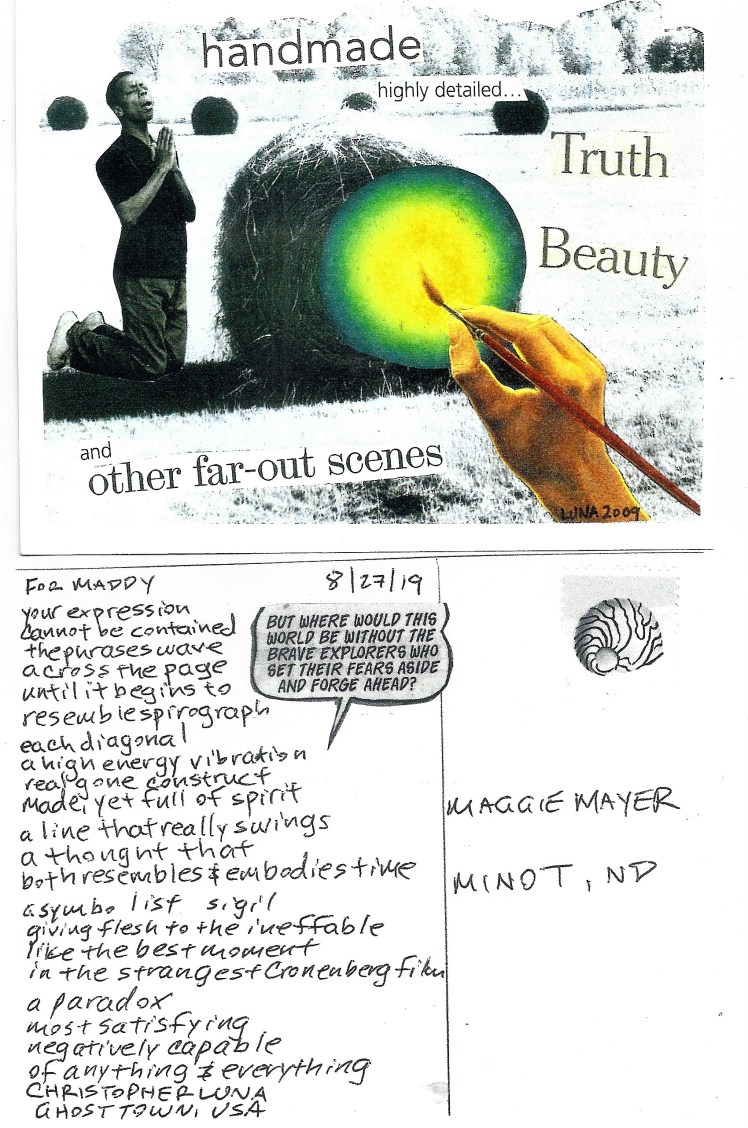 handmade
highly detailed...
Truth
Beauty
and
other far-out scenes
LUNA 2009
FOR MADDY
8/27/19
your expression
cannot be contained
the phrases wave
across the page
until it begins to
resemble spirograph
each diagonal
a high energy vibration
real gone construct
made, yet full of spirit
a line that really swings
a thought that
both resembles & embodies time
a symbolist sigil
giving flesh to the ineffable
like the best moment
in the strangest Cronenberg film
a paradox
most satisfying
negatively capable
of anything & everything
CHRISTOPHER LUNA
GHOST TOWN, USA
BUT WHERE WOULD THIS
WORLD BE WITHOUT THE
BRAVE EXPLORERS WHO
SET THEIR FEARS ASIDE
AND FORGE AHEAD?
MAGGIE MAYER
MINOT, ND